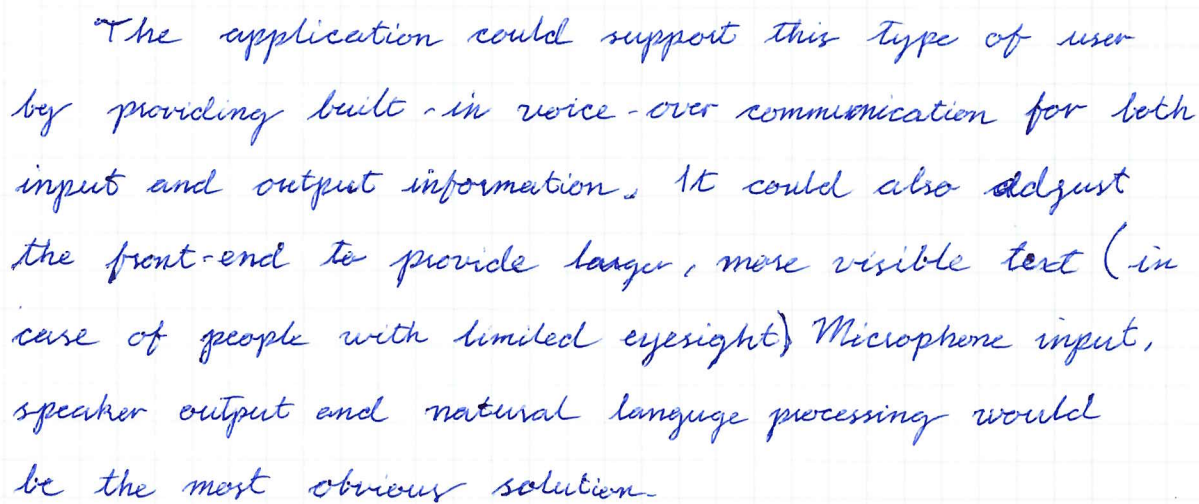 The application could support this type of user
by providing built-in voice-over communication for both
input and output information. It could also adjust
the front-end to provide larger, more visible text (in
case of people with limited eyesight) Microphone input,
speaker output and natural languge processing would
be the most obvious solution.